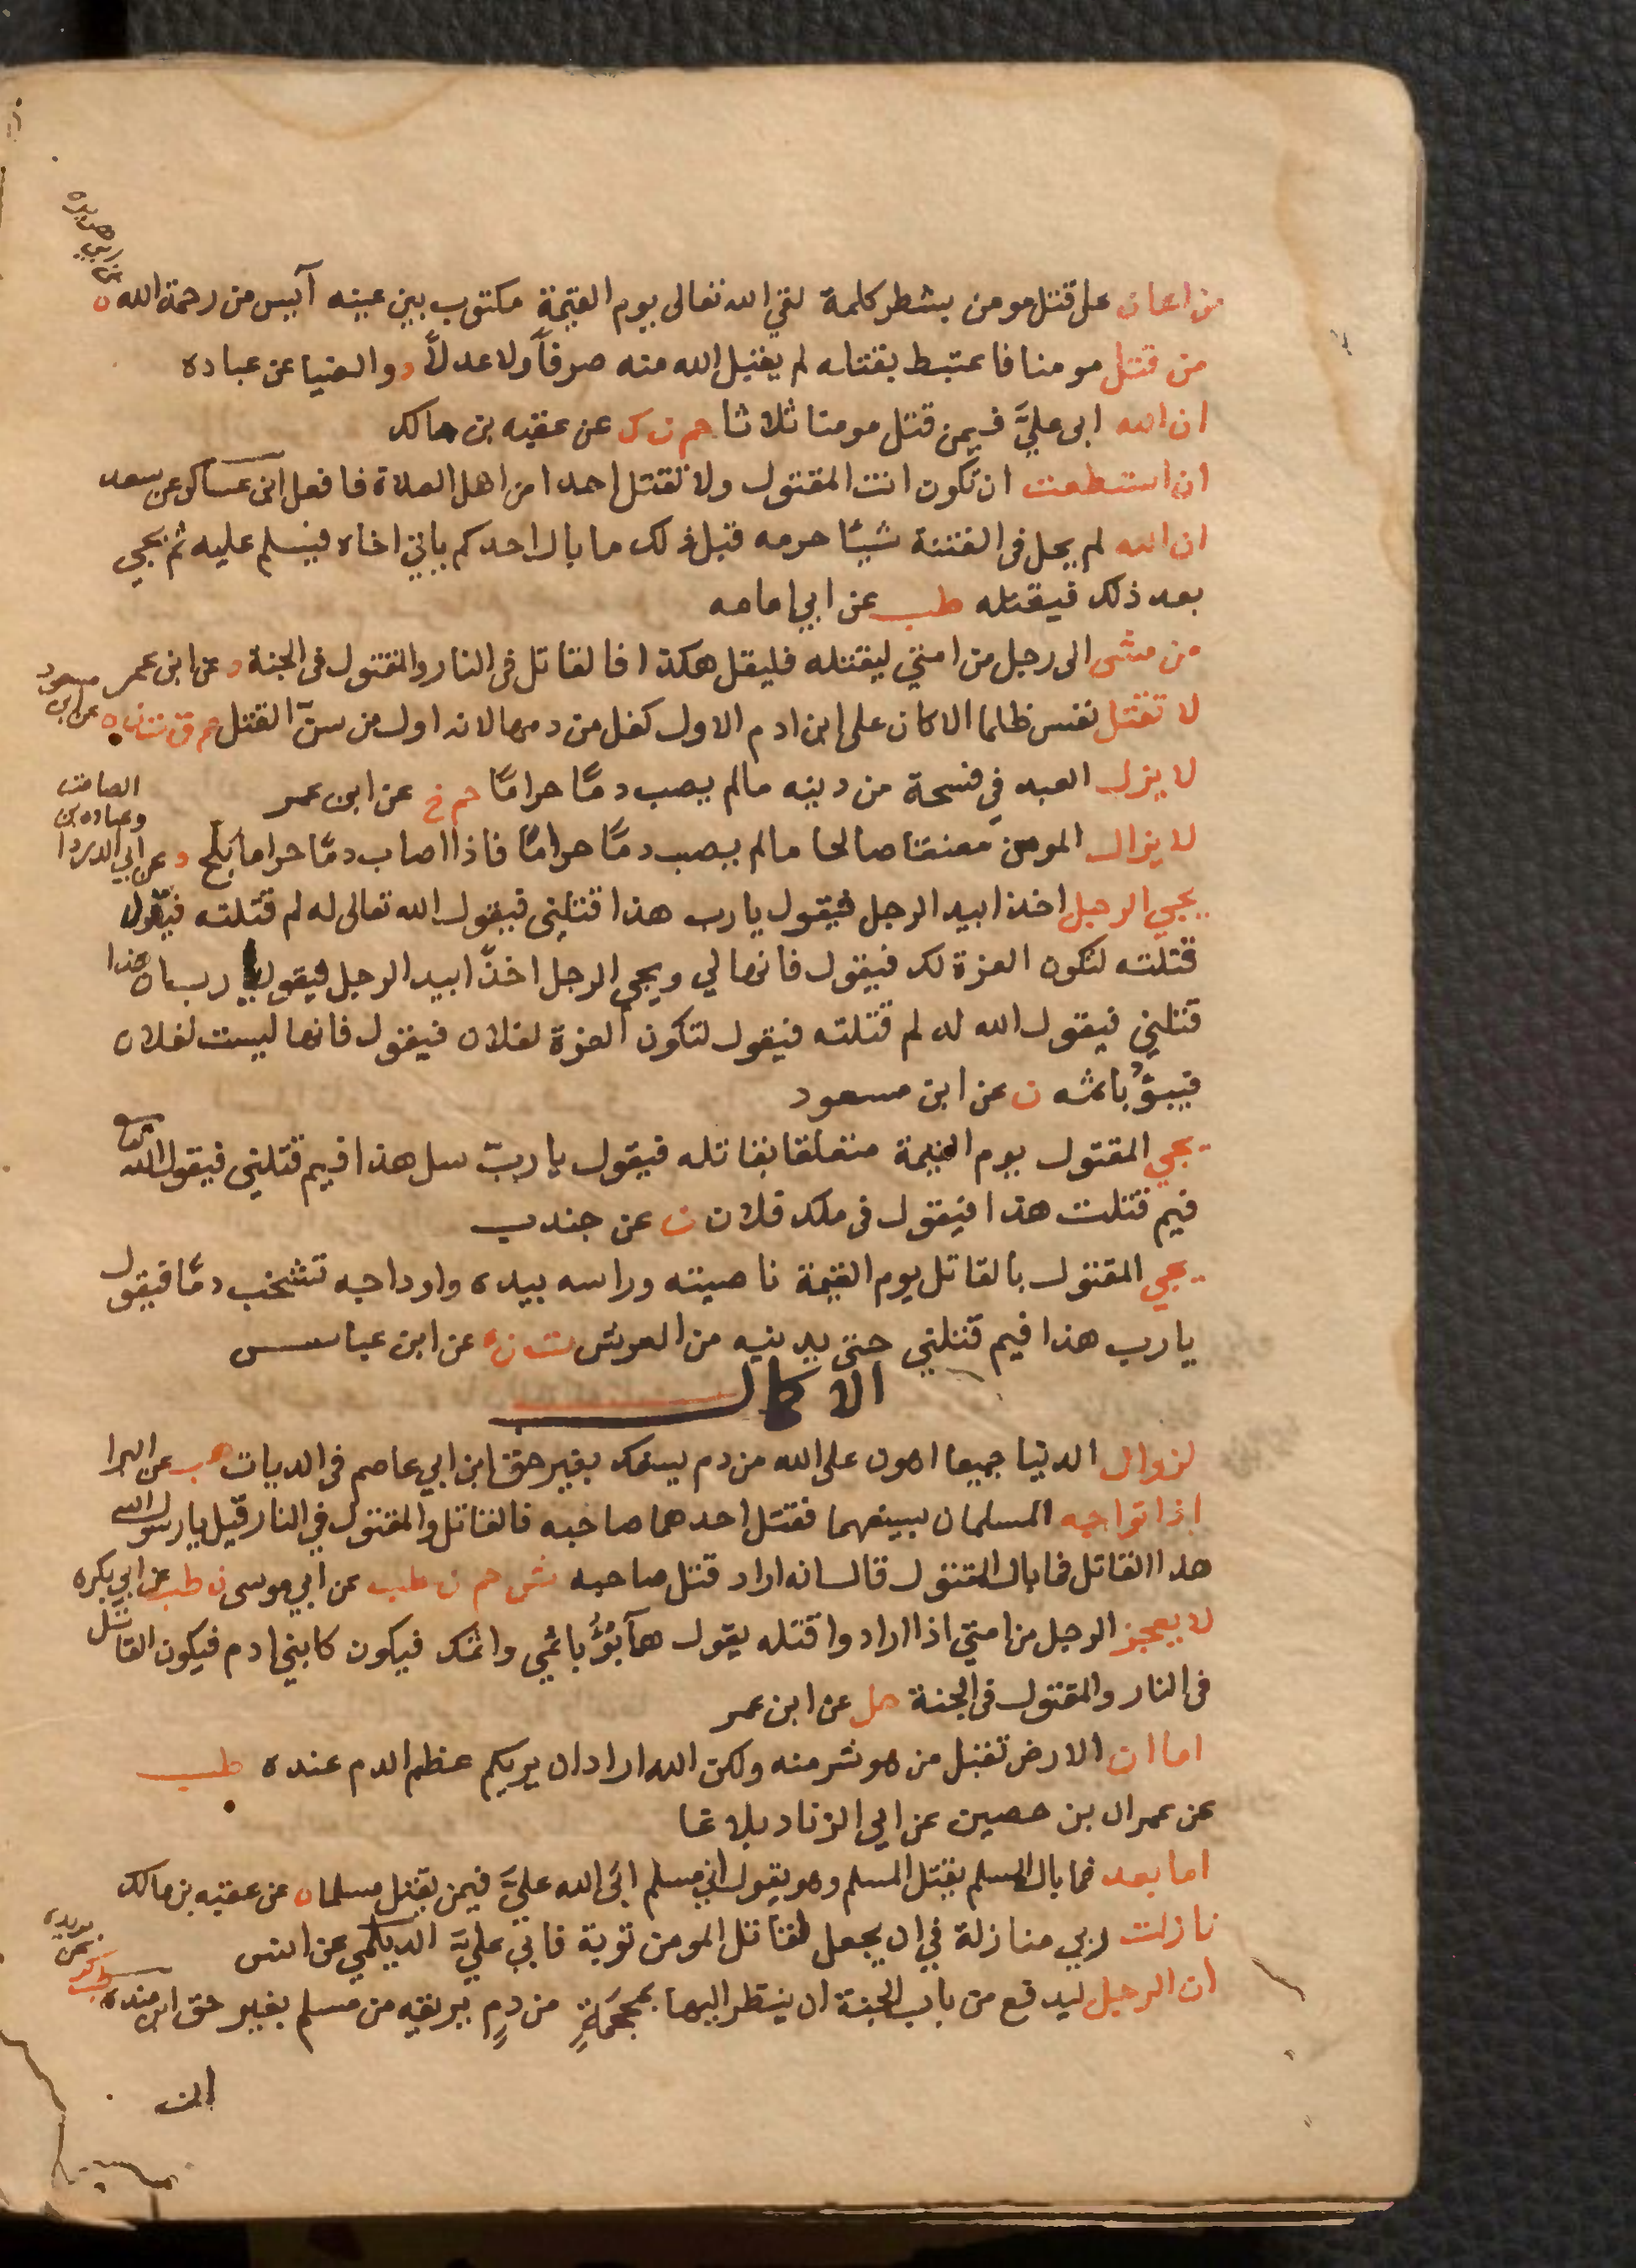 من اعان على قتل مومن بشطر كلمة لقي الله تعالى يوم القيمة مكتوب بين عينيه آيس من رحمة الله ه
عن ابي هريرة
من قتل مومنا فاعتبط بقتله لم يقبل الله منه صرفاً ولا عدلاً د والضيا عن عباده
ان الله ابى عليَّ فيمن قتل مومنا ثلاثا حم ن ك عن عقبه بن مالك
ان استطعت ان تكون انت المقتول ولا تقتل احدا من اهل الصلاة فافعل ابن عساكر عن سعد
ان الله لم يحل في الفتنة شيئًا حرمه قبل ذلك ما بال احدكم ياتي اخاه فيسلم عليه ثم يجي
بعد ذلك فيقتله طب عن ابي امامه
من مشى الى رجل من امتي ليقتله فليقل هكذا فالقاتل في النار والمقتول في الجنة د عن ابن عمر
لا تقتل نفس ظلما الا كان على ابن ادم الاول كفل من دمها لانه اول من سنّ القتل حم ق ت ن ه عن ابن مسعود
لا يزل العبد في فسحة من دينه مالم يصب دمًا حرامًا حم خ عن ابن عمر
لا يزال المومن معنقا صالحا مالم يصب دمًا حرامًا فاذا اصاب دمًا حراما بلّح د عن ابي الدردا
وعباده بن الصامت
يجي الرجل اخذا بيد الرجل فيقول يارب هذا قتلني فيقول الله تعالى له لم قتلته فيقول
قتلته لتكون العزة لك فيقول فانها لي ويجي الرجل اخذًا بيد الرجل فيقول يا رب ان هذا
قتلني فيقول الله له لم قتلته فيقول لتكون العزة لفلان فيقول فانها ليست لفلان
فيبؤُ باثمه ن عن ابن مسعود
يجي المقتول يوم القيمة متعلقا بقاتله فيقول يا ربّ سل هذا فيم قتلني فيقول الله تعالى
فيم قتلت هذا فيقول في ملك فلان ن عن جندب
يجي المقتول بالقاتل يوم القيمة ناصيته وراسه بيده واوداجه تشخب دمًا فيقول
يارب هذا فيم قتلني حتى يدنيه من العرش ت ن ه عن ابن عباس
الاكمال
لزوال الدنيا جميعا اهون على الله من دم يسفك بغير حق ابن ابي عاصم في الديات هب عن البرا
اذا تواجه المسلمان بسيفهما فقتل احدهما صاحبه فالقاتل والمقتول في النار قيل يارسول الله
هذا القاتل فما بال المقتول قال انه اراد قتل صاحبه ش حم ن طب عن ابي موسى ن طب عن ابي بكره
لا يعجز الرجل من امتي اذا ارادوا قتله يقول هآ بُؤْ باثمي واثمك فيكون كابني ادم فيكون القاتل
في النار والمقتول في الجنة حل عن ابن عمر
اما ان الارض تقبل من هو شر منه ولكن الله اراد ان يريكم عظم الدم عنده طب
عن عمران بن حصين عن ابي الزناد بلاغا
اما بعد فما بال المسلم يقتل المسلم وهو يقول اني مسلم ابَى الله عليَّ فيمن يقتل مسلما ن عن عقبه بن مالك
نازلت ربي منازلة في ان يجعل لقاتل المومن توبة فابى عليَّ الديلمي عن انس
ان الرجل ليدفع من باب الجنة ان ينظر اليها بمحجمةٍ من دمٍ يريقه من مسلم بغير حق ابن منده كر عن بريده